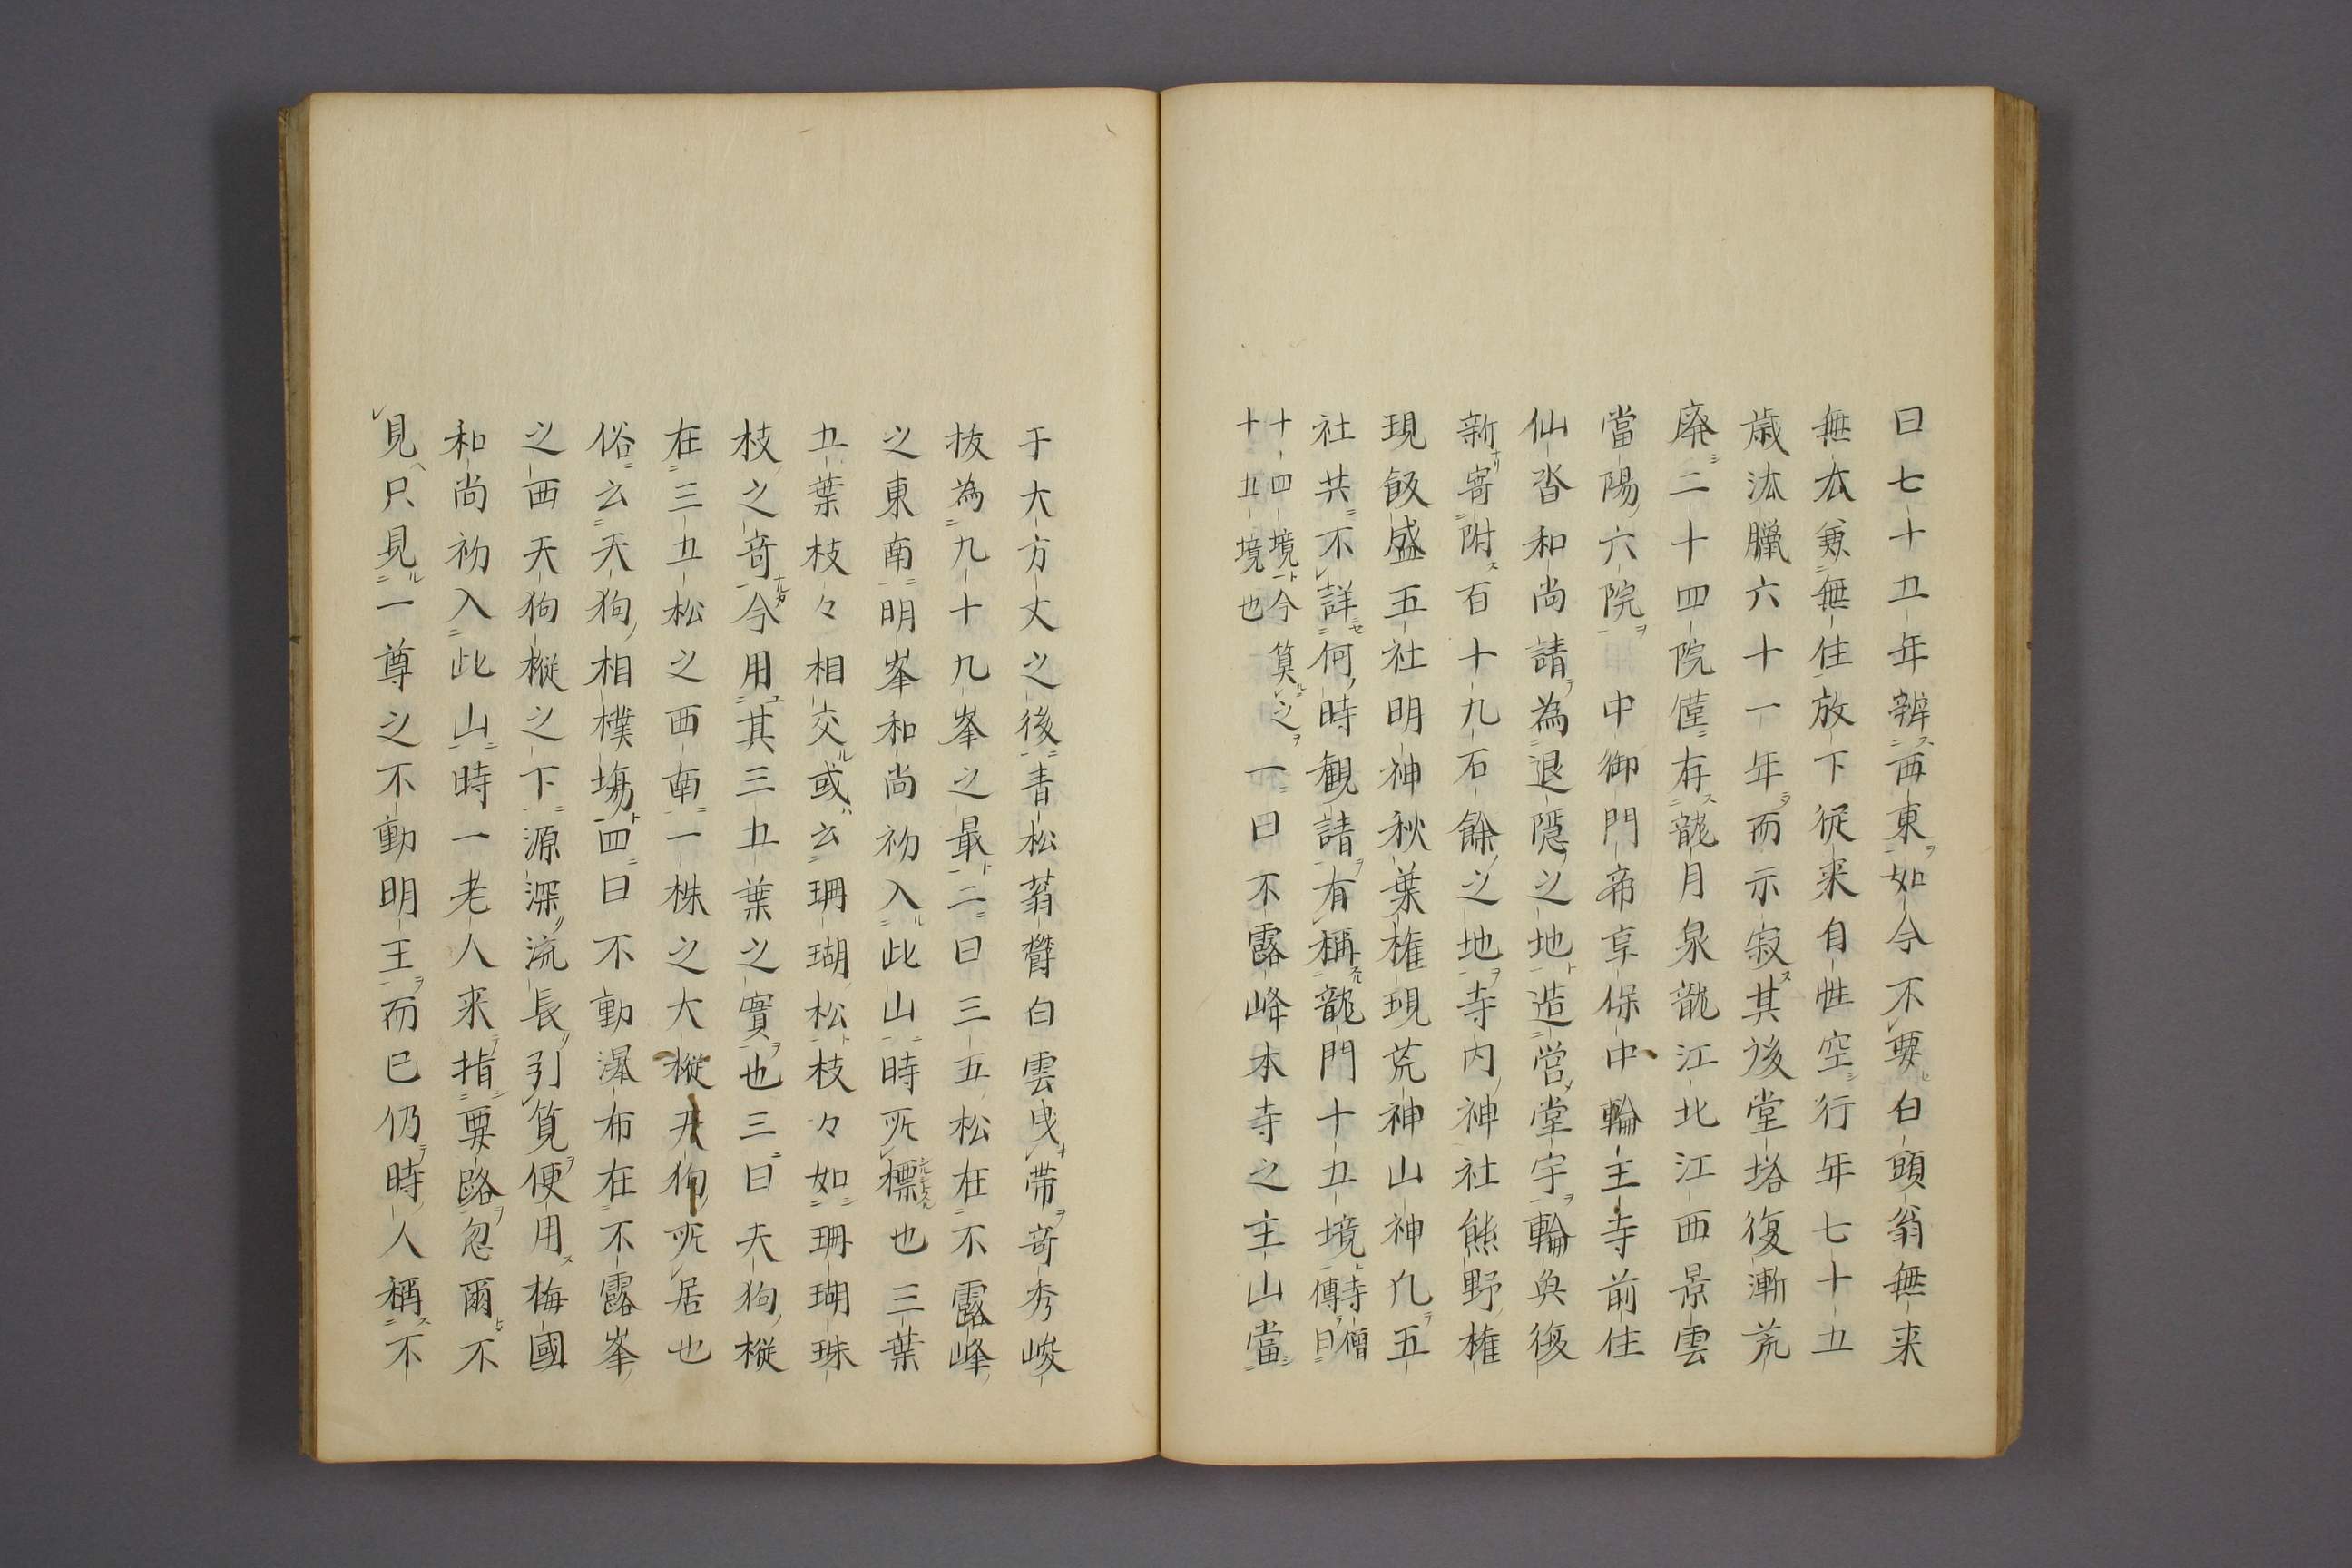 曰七十五年辨西東如今不要白頭翁無来
無去兼無住放下従来自性空行年七十五
歳法臘六十一年而示寂其後堂塔復漸荒
廃二十四院僅存龍月泉龍江北江西景雲
當陽六院 中御門帝享保中輪主寺前住
仙沓和尚請為退隠之地造営堂宇輪奐復
新寄附百十九石餘之地寺内神社熊野権
現飯盛五社明神秋葉権現荒神山神凡五
社共不詳何時観請有稱龍門十五境寺僧傳曰
十四境今算之
十五境也
一曰不露峰本寺之主山當
于大方丈之後青松蓊欝白雲曳帯奇秀峻
抜為九十九峯之最二曰三五松在不露峰
之東南明峯和尚初入此山時所標也三葉
五葉枝々相交或云珊瑚松枝々如珊瑚珠
枝之奇今用其三五葉之實也三曰天狗樅
在三五松之西南一株之大樅天狗所居也
俗云天狗相樸場四曰不動瀑布在不露峯
之西天狗樅之下源深流長引筧便用梅國
和尚初入此山時一老人来指要路忽爾不
見只見一尊之不動明王而已仍時人稱不